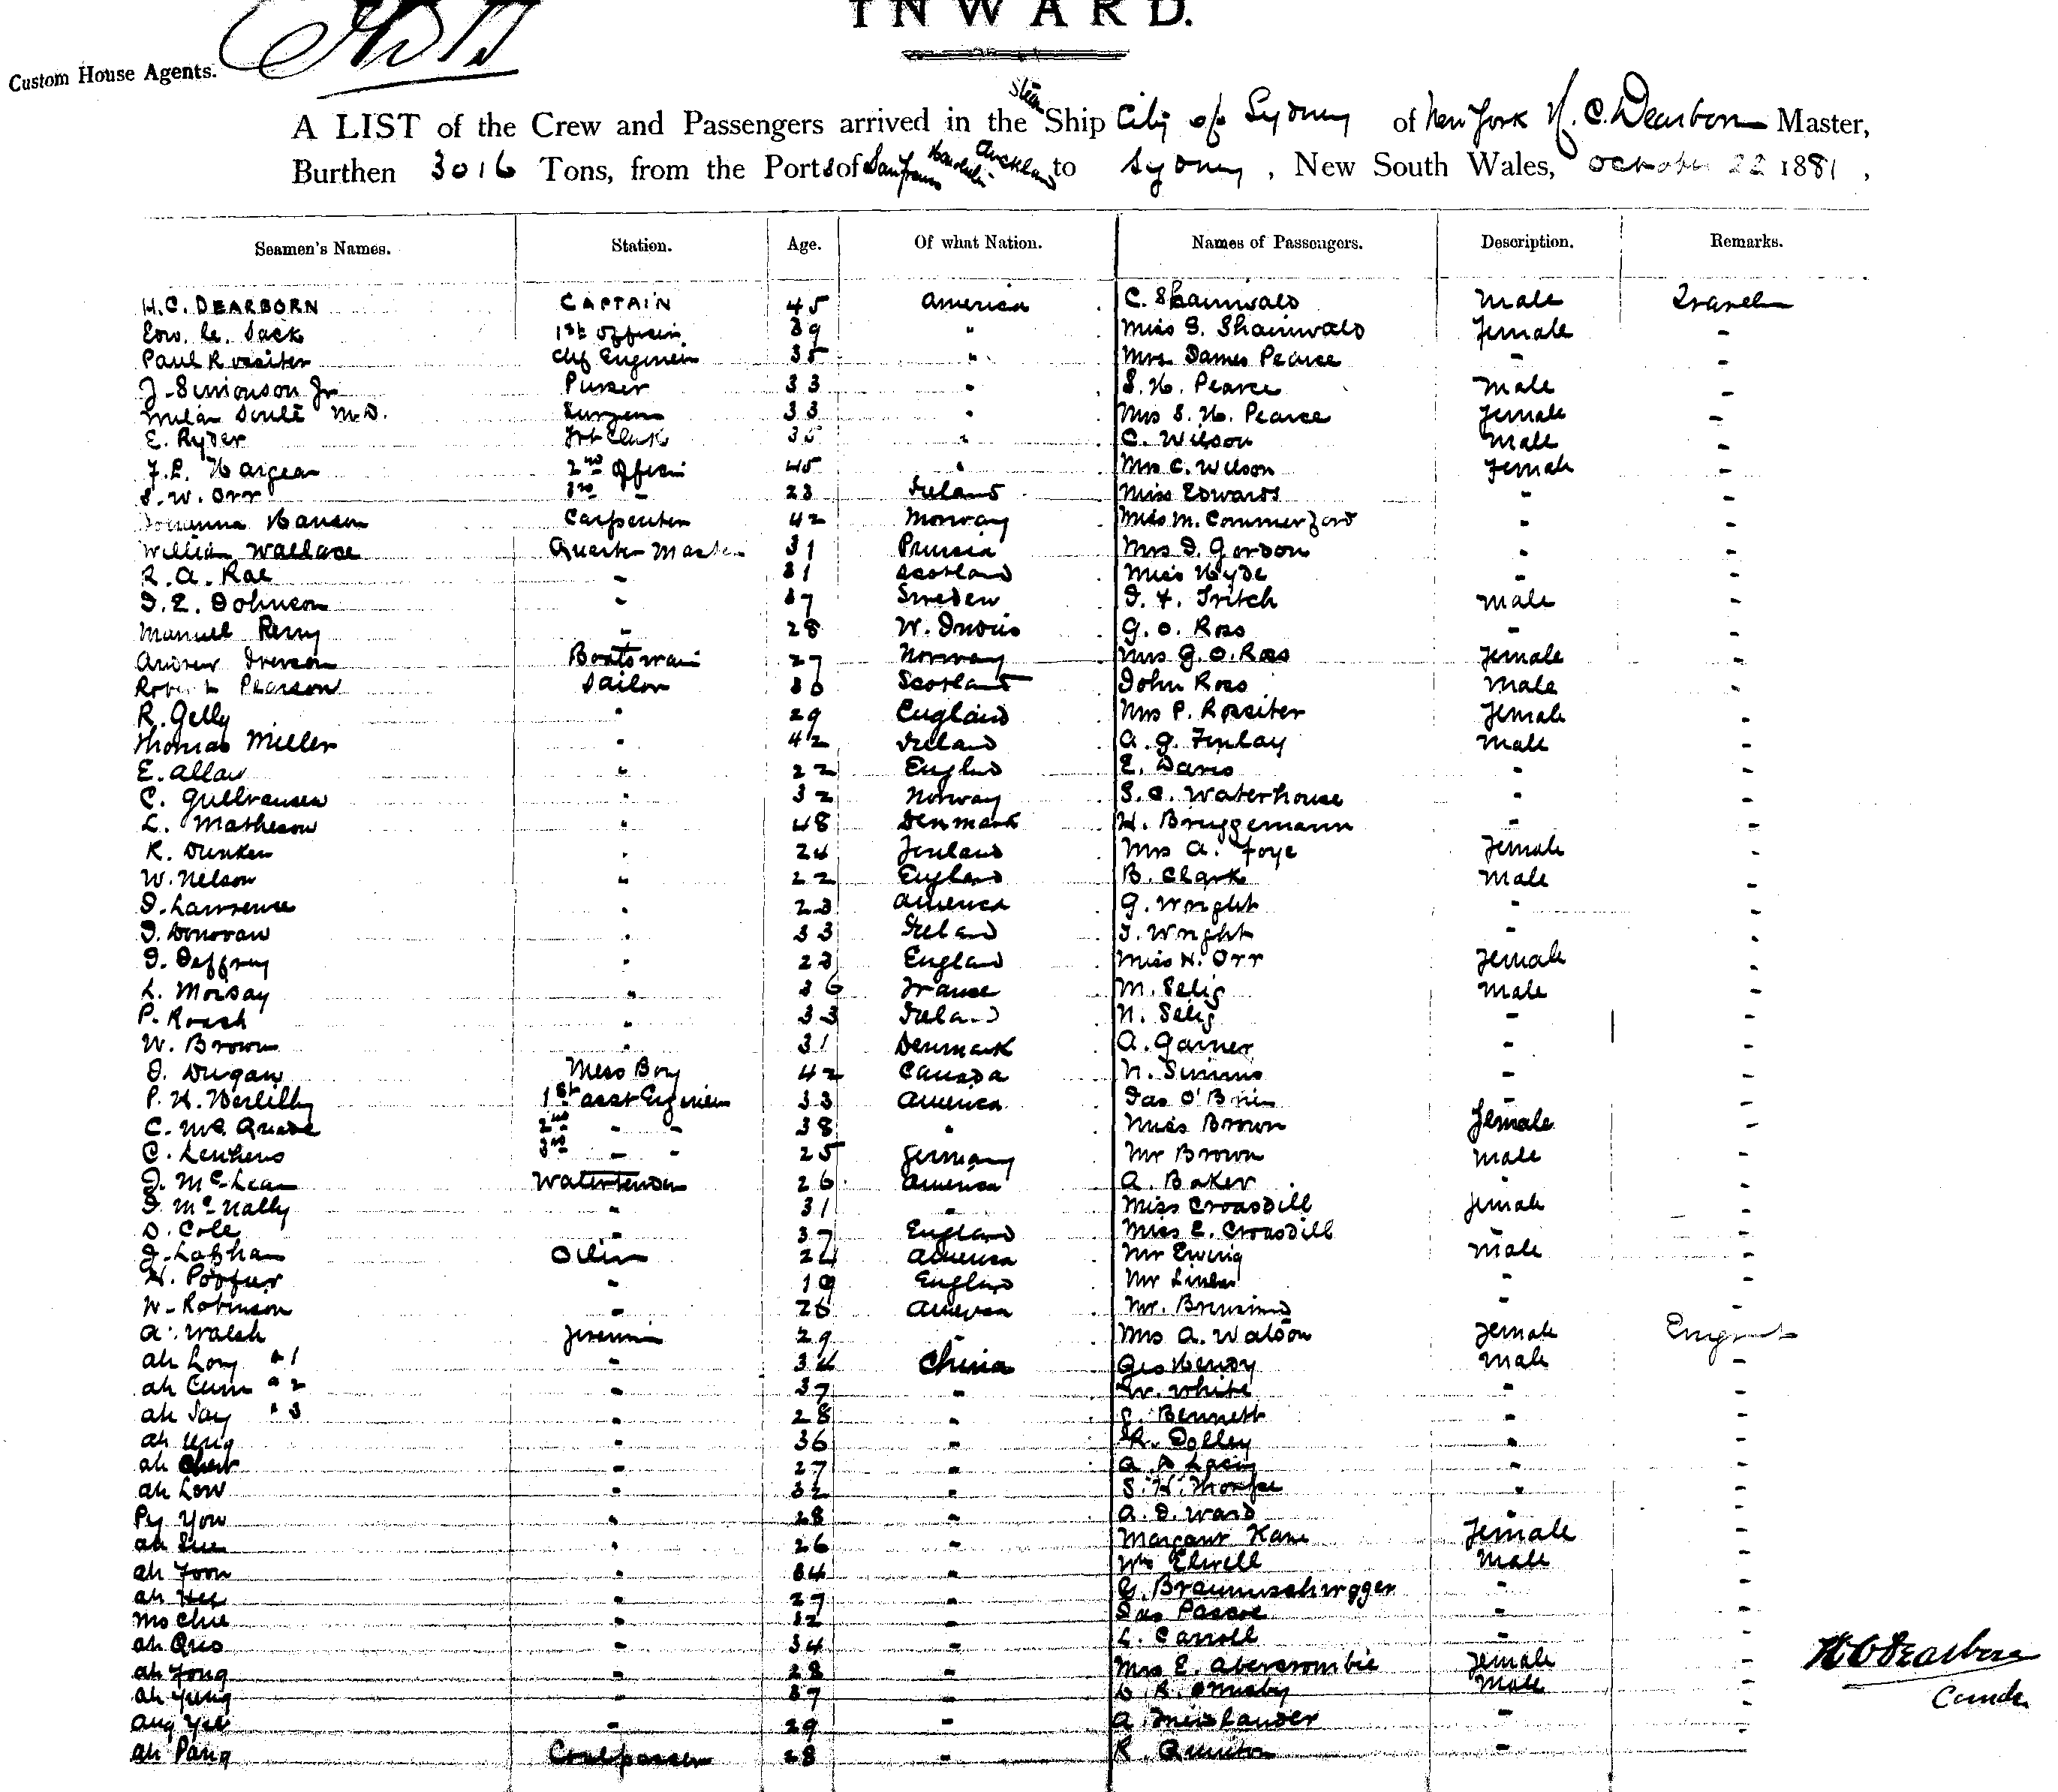 INWARD.
Custom House Agents.
Steam
A LIST of the Crew and Passengers arrived in the Ship City of Sydney of New York H. C. Dearborn Master,
Burthen 3016 Tons, from the Ports of San Franco Honolulu Auckland to Sydney, New South Wales, October 22 1881,
Seamen's Names. Station. Age. Of what Nation. Names of Passengers. Description. Remarks.
H.C. DEARBORN CAPTAIN 45 America C. Shainwald Male Traveler
1st Officer 39 " Miss S. Shainwald Female -
Paul Rossiter Chf Engineer 35 " Mrs James Pearce - -
J. Simonson Jr Purser 33 " S. H. Pearce Male -
Soulé M.D. Surgeon 33 " Mrs S. H. Pearce Female -
E. Ryder Frt Clerk " C. Wilson Male -
2nd Officer 45 " Mrs C. Wilson Female -
S. W. Orr 3rd - 23 Ireland Miss Edwards - -
Hansen Carpenter 42 Norway Miss M. Commerford - -
William Wallace Quarter Master 31 Prussia Mrs J. Gordon - -
R. A. Rae - 31 Scotland Miss Hyde - -
J. E. Johnson - 37 Sweden J. F. Fritch Male -
Manuel Perry - 28 W. Indies G. O. Ross - -
Andrew Iverson Boatswain 27 Norway Mrs G. O. Ross Female -
Robert Pearson Sailor Scotland John Ross Male -
R. Gelly " 29 England Mrs P. Rossiter Female -
Thomas Miller " 42 Ireland A. G. Finlay Male -
E. Allan " 22 England E. Davis " -
C. Gullvausen " 32 Norway S. C. Waterhouse " -
L. Matheson " 48 Denmark H. Bruggemann - -
K. Dunker " 24 Finland Mrs A. Foye Female -
W. Nelson " 22 England B. Clark Male -
J. Lawrence " 23 America G. Wright - -
J. Donovan " 33 Ireland J. Wright - -
J. Jeffrey " 23 England Miss H. Orr Female -
L. Morsay " 36 France M. Selig Male -
P. Roach " 33 Ireland N. Selig - -
W. Brown " 31 Denmark A. Garner - -
J. Dugan Mess Boy 42 Canada N. Simms - -
P. H. 1st asst Engineer 33 America Jas O'Brien - -
C. McQuade 2nd - - 38 " Miss Brown Female -
C. 3rd - - 25 Germany Mr Brown Male -
J. McLean Watertender 26 America A. Baker - -
J. McNally - 31 - Miss Croasdill Female -
D. Cole - 37 England Miss E. Croasdill - -
J. Lapham Oiler 24 America Mr Ewing Male -
H. - 19 England Mr - -
W. Robinson - 26 America Mr. - -
A. Walsh Fireman 29 - Mrs A. Watson Female Emigrant
Ah Long #1 - 34 China Geo Hendy Male -
Ah Cum #2 - 37 - W. White - -
Ah Jay #3 - 28 - Bennett - -
Ah Ung - 36 - R. Dolley - -
Ah - 27 - A. Lacy - -
Ah Low - 32 - S. H. Thorpe - -
Py You - 28 - A. J. Ward - -
Ah Sue - 26 - Margaret Kane Female -
Ah Foon - 34 - Wm Elwell Male -
Ah Hee - 27 - G. Braunuschwgger - -
Mo Chue - 32 - Jas Pascoe - -
Ah Quo - 34 - L. Carroll - -
Ah Fong - 28 - Mrs E. Abercrombie Female -
Ah Yung - 37 - Ormsby Male -
Ang Yee - 29 - A. Friedlander - -
Ah Pang Coalpasser 28 - R. Quinton - -
H C Dearborn